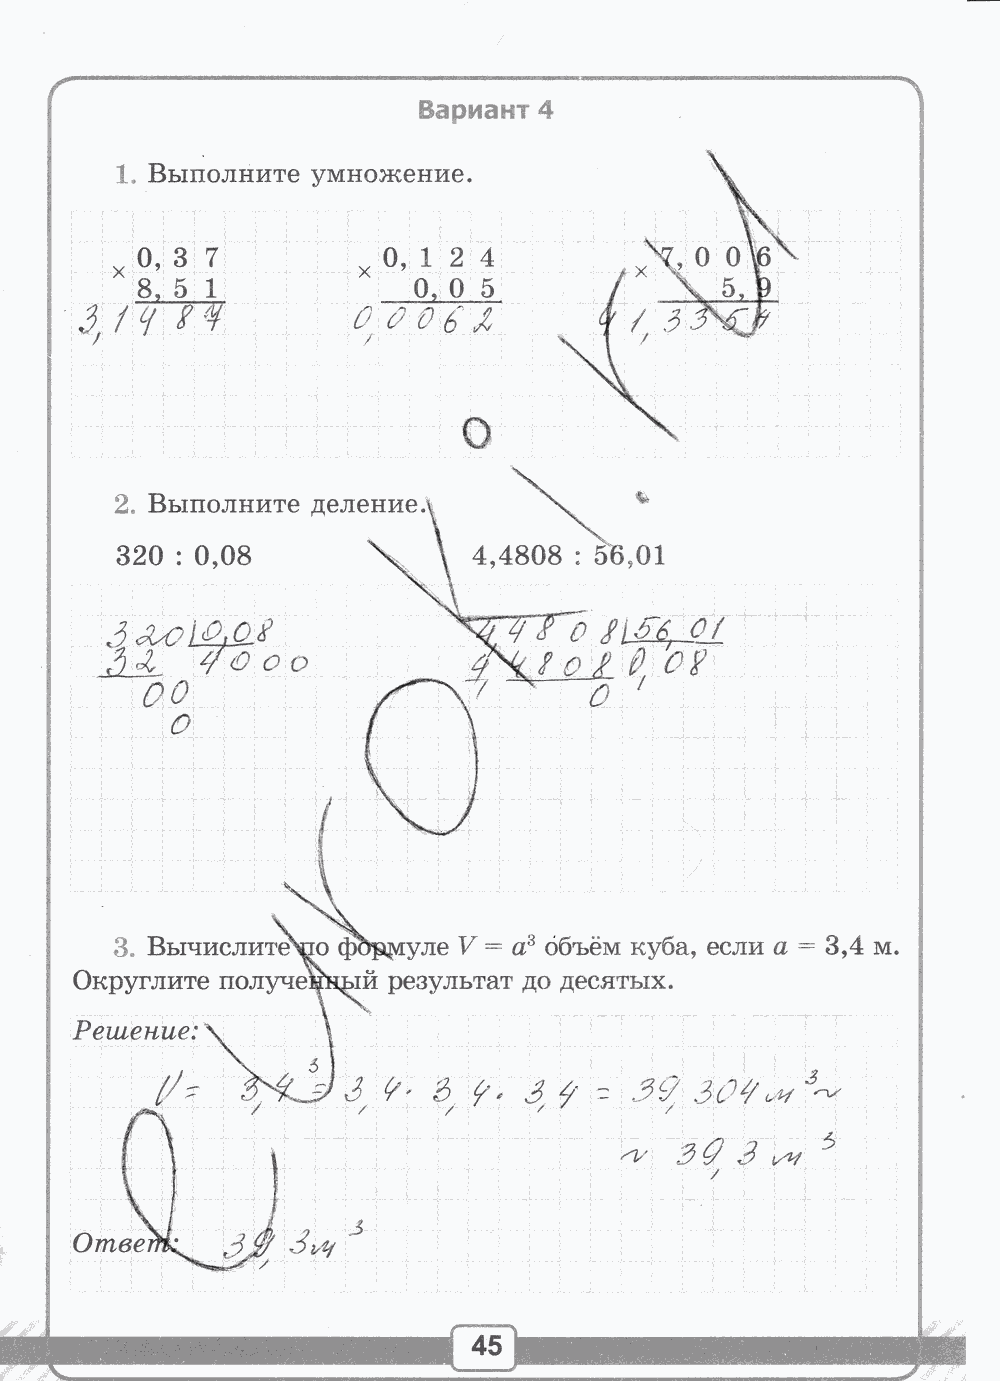 Вариант 4
1. Выполните умножение.
× 0,37 × 0,124 × 7,006
8,51 0,05 5,9
3,1487 0,0062 41,3354
2. Выполните деление.
320 : 0,08 4,4808 : 56,01
320 0,08 4,4808 56,01
32 4000 4,4808 0,08
00 0
0
3. Вычислите по формуле V = a³ объём куба, если a = 3,4 м.
Округлите полученный результат до десятых.
Решение:
V = 3,4³ = 3,4 · 3,4 · 3,4 = 39,304 м³ ~
~ 39,3 м³
Ответ: 39,3 м³
45